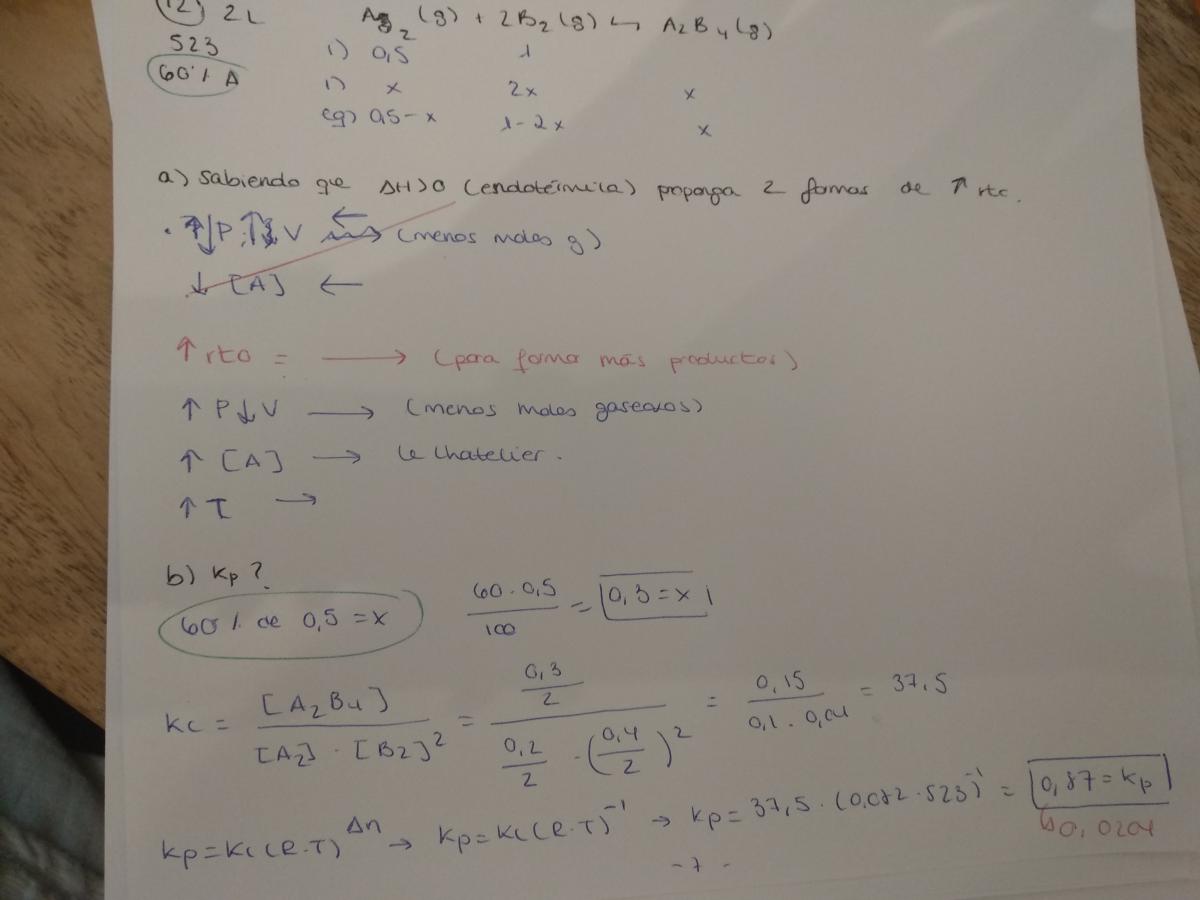 12) 2L A₂ (g) + 2B₂ (g) ↔ A₂B₄ (g)
523 i) 0,5 1
60% A r) x 2x x
eq) 0,5-x 1-2x x
a) Sabiendo que ΔH>0 (endotérmica) proponga 2 formas de ↑ rto.
· ↓P; ↑V ← (menos moles g)
↓ [A] ←
↑ rto = → (para formar más productos)
↑ P ↓ V → (menos moles gaseosos)
↑ [A] → Le Chatelier.
↑ T →
b) Kp?
60% de 0,5 = x 60 · 0,5 / 100 = 0,3 = x
Kc = [A₂B₄] / [A₂] · [B₂]² = (0,3/2) / (0,2/2 · (0,4/2)²) = 0,15 / 0,1 · 0,04 = 37,5
Kp = Kc (R·T)^Δn → Kp = Kc (R·T)⁻¹ → Kp = 37,5 · (0,082 · 523)⁻¹ = 0,87 = Kp
↳ 0,0204
-7-